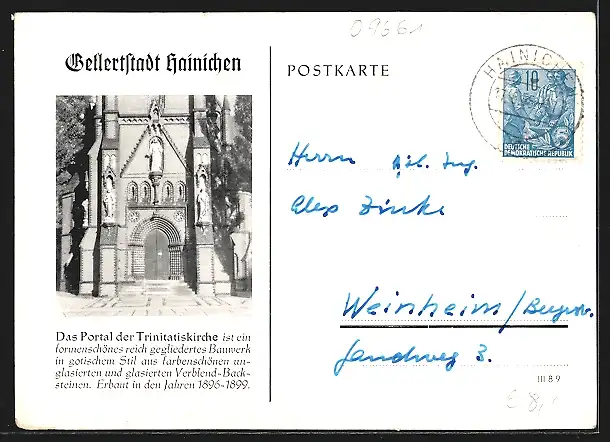 09661
Gellertstadt Hainichen
POSTKARTE
HAINICH
10
DEUTSCHE
DEMOKRATISCHE REPUBLIK
Herrn Dipl. Ing.
Alex Zinke
Weinheim / Bergstr.
Landweg 3.
Das Portal der Trinitatiskirche ist ein
formenschönes reich gegliedertes Bauwerk
in gotischem Stil aus farbenschönen un-
glasierten und glasierten Verblend-Back-
steinen. Erbaut in den Jahren 1896-1899.
III 8 9
€ 8,-